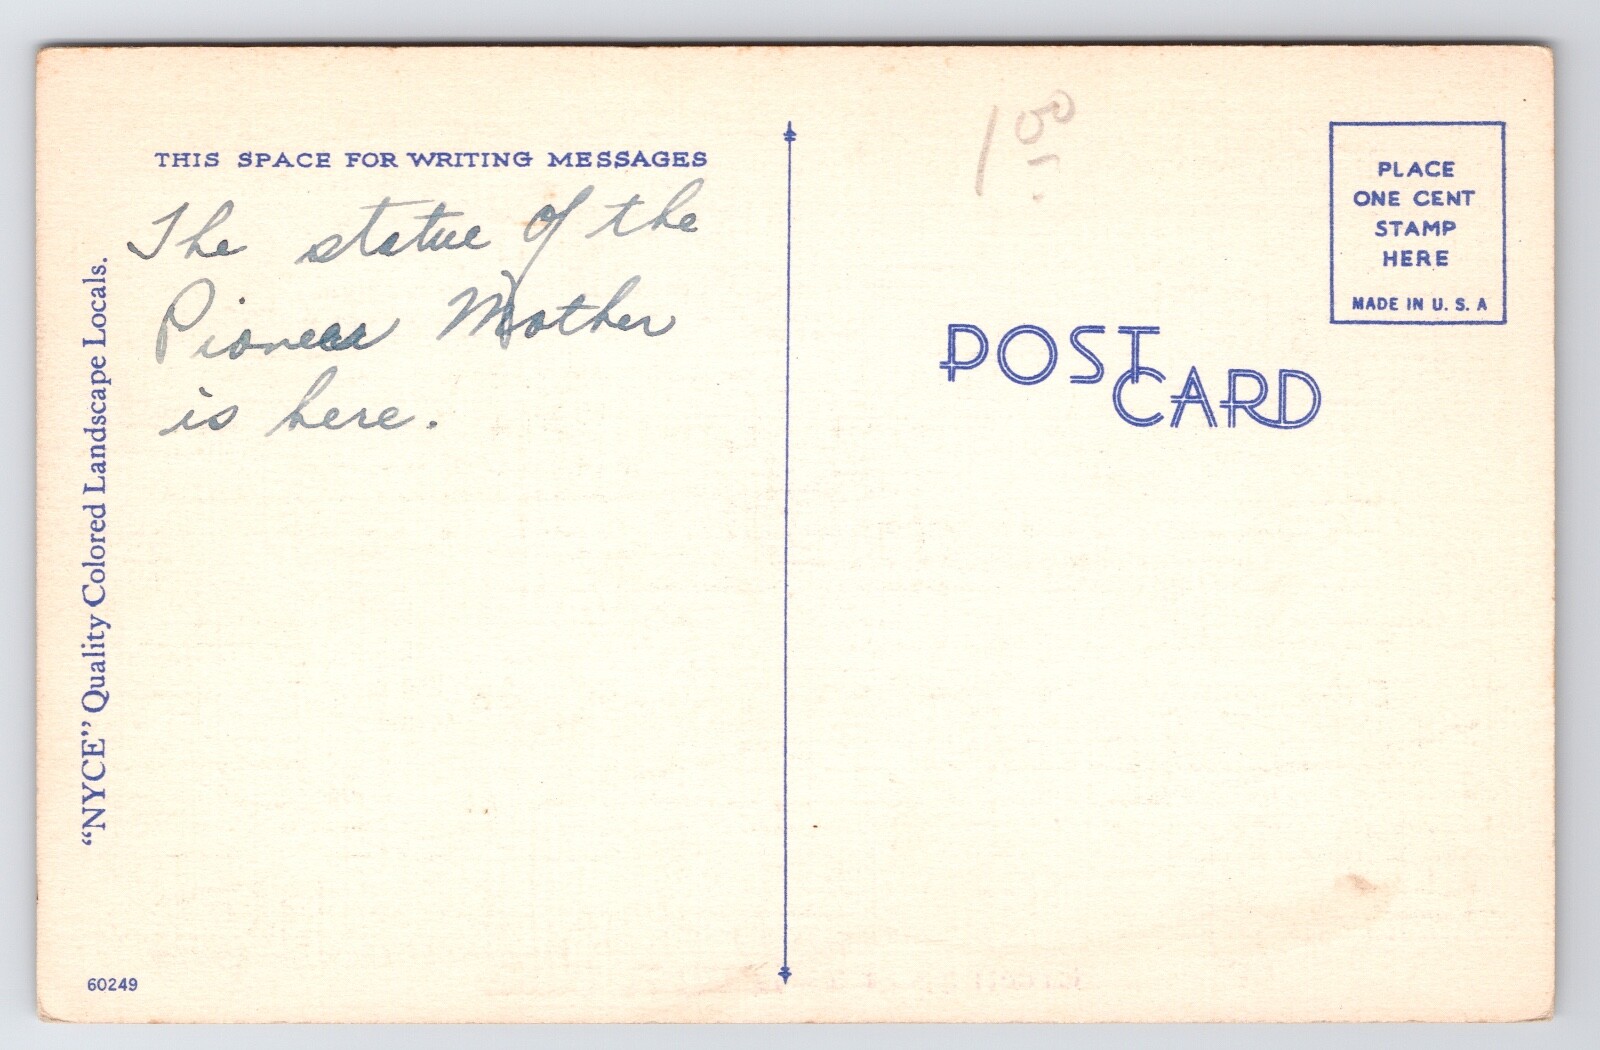 THIS SPACE FOR WRITING MESSAGES
The statue of the
Pioneer Mother
is here.
"NYCE" Quality Colored Landscape Locals.
60249
1 00
POST
CARD
PLACE
ONE CENT
STAMP
HERE
MADE IN U. S. A